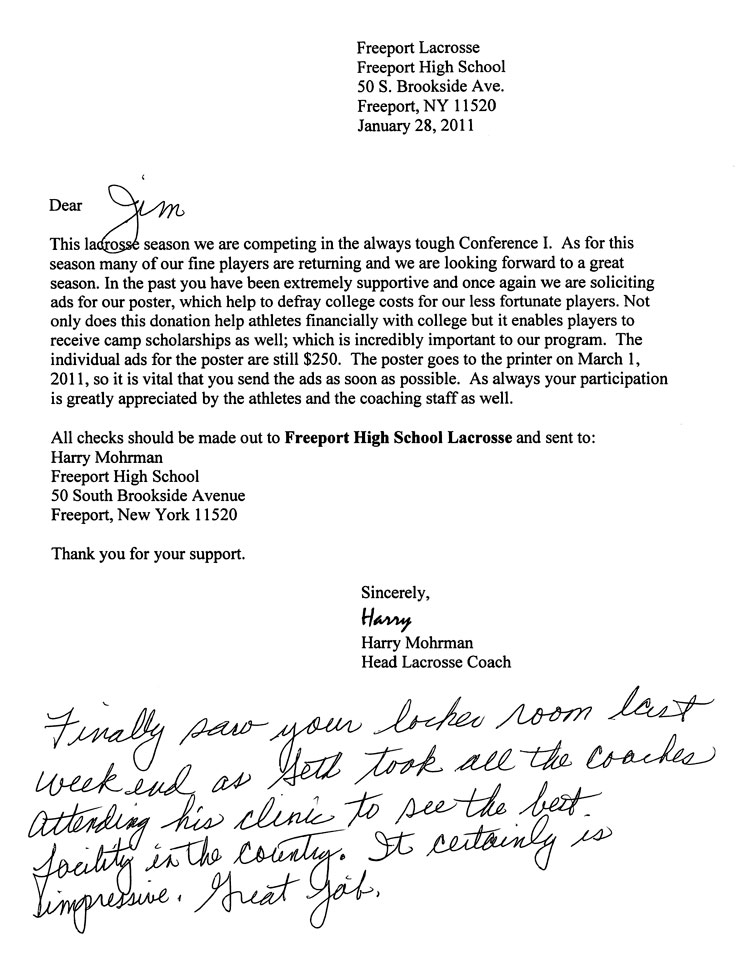 Freeport Lacrosse
Freeport High School
50 S. Brookside Ave.
Freeport, NY 11520
January 28, 2011
Dear Jim
This lacrosse season we are competing in the always tough Conference I. As for this
season many of our fine players are returning and we are looking forward to a great
season. In the past you have been extremely supportive and once again we are soliciting
ads for our poster, which help to defray college costs for our less fortunate players. Not
only does this donation help athletes financially with college but it enables players to
receive camp scholarships as well; which is incredibly important to our program. The
individual ads for the poster are still $250. The poster goes to the printer on March 1,
2011, so it is vital that you send the ads as soon as possible. As always your participation
is greatly appreciated by the athletes and the coaching staff as well.
All checks should be made out to Freeport High School Lacrosse and sent to:
Harry Mohrman
Freeport High School
50 South Brookside Avenue
Freeport, New York 11520
Thank you for your support.
Sincerely,
Harry
Harry Mohrman
Head Lacrosse Coach
Finally saw your locker room last
weekend as Seth took all the coaches
attending his clinic to see the best
facility in the country. It certainly is
impressive. Great Job.